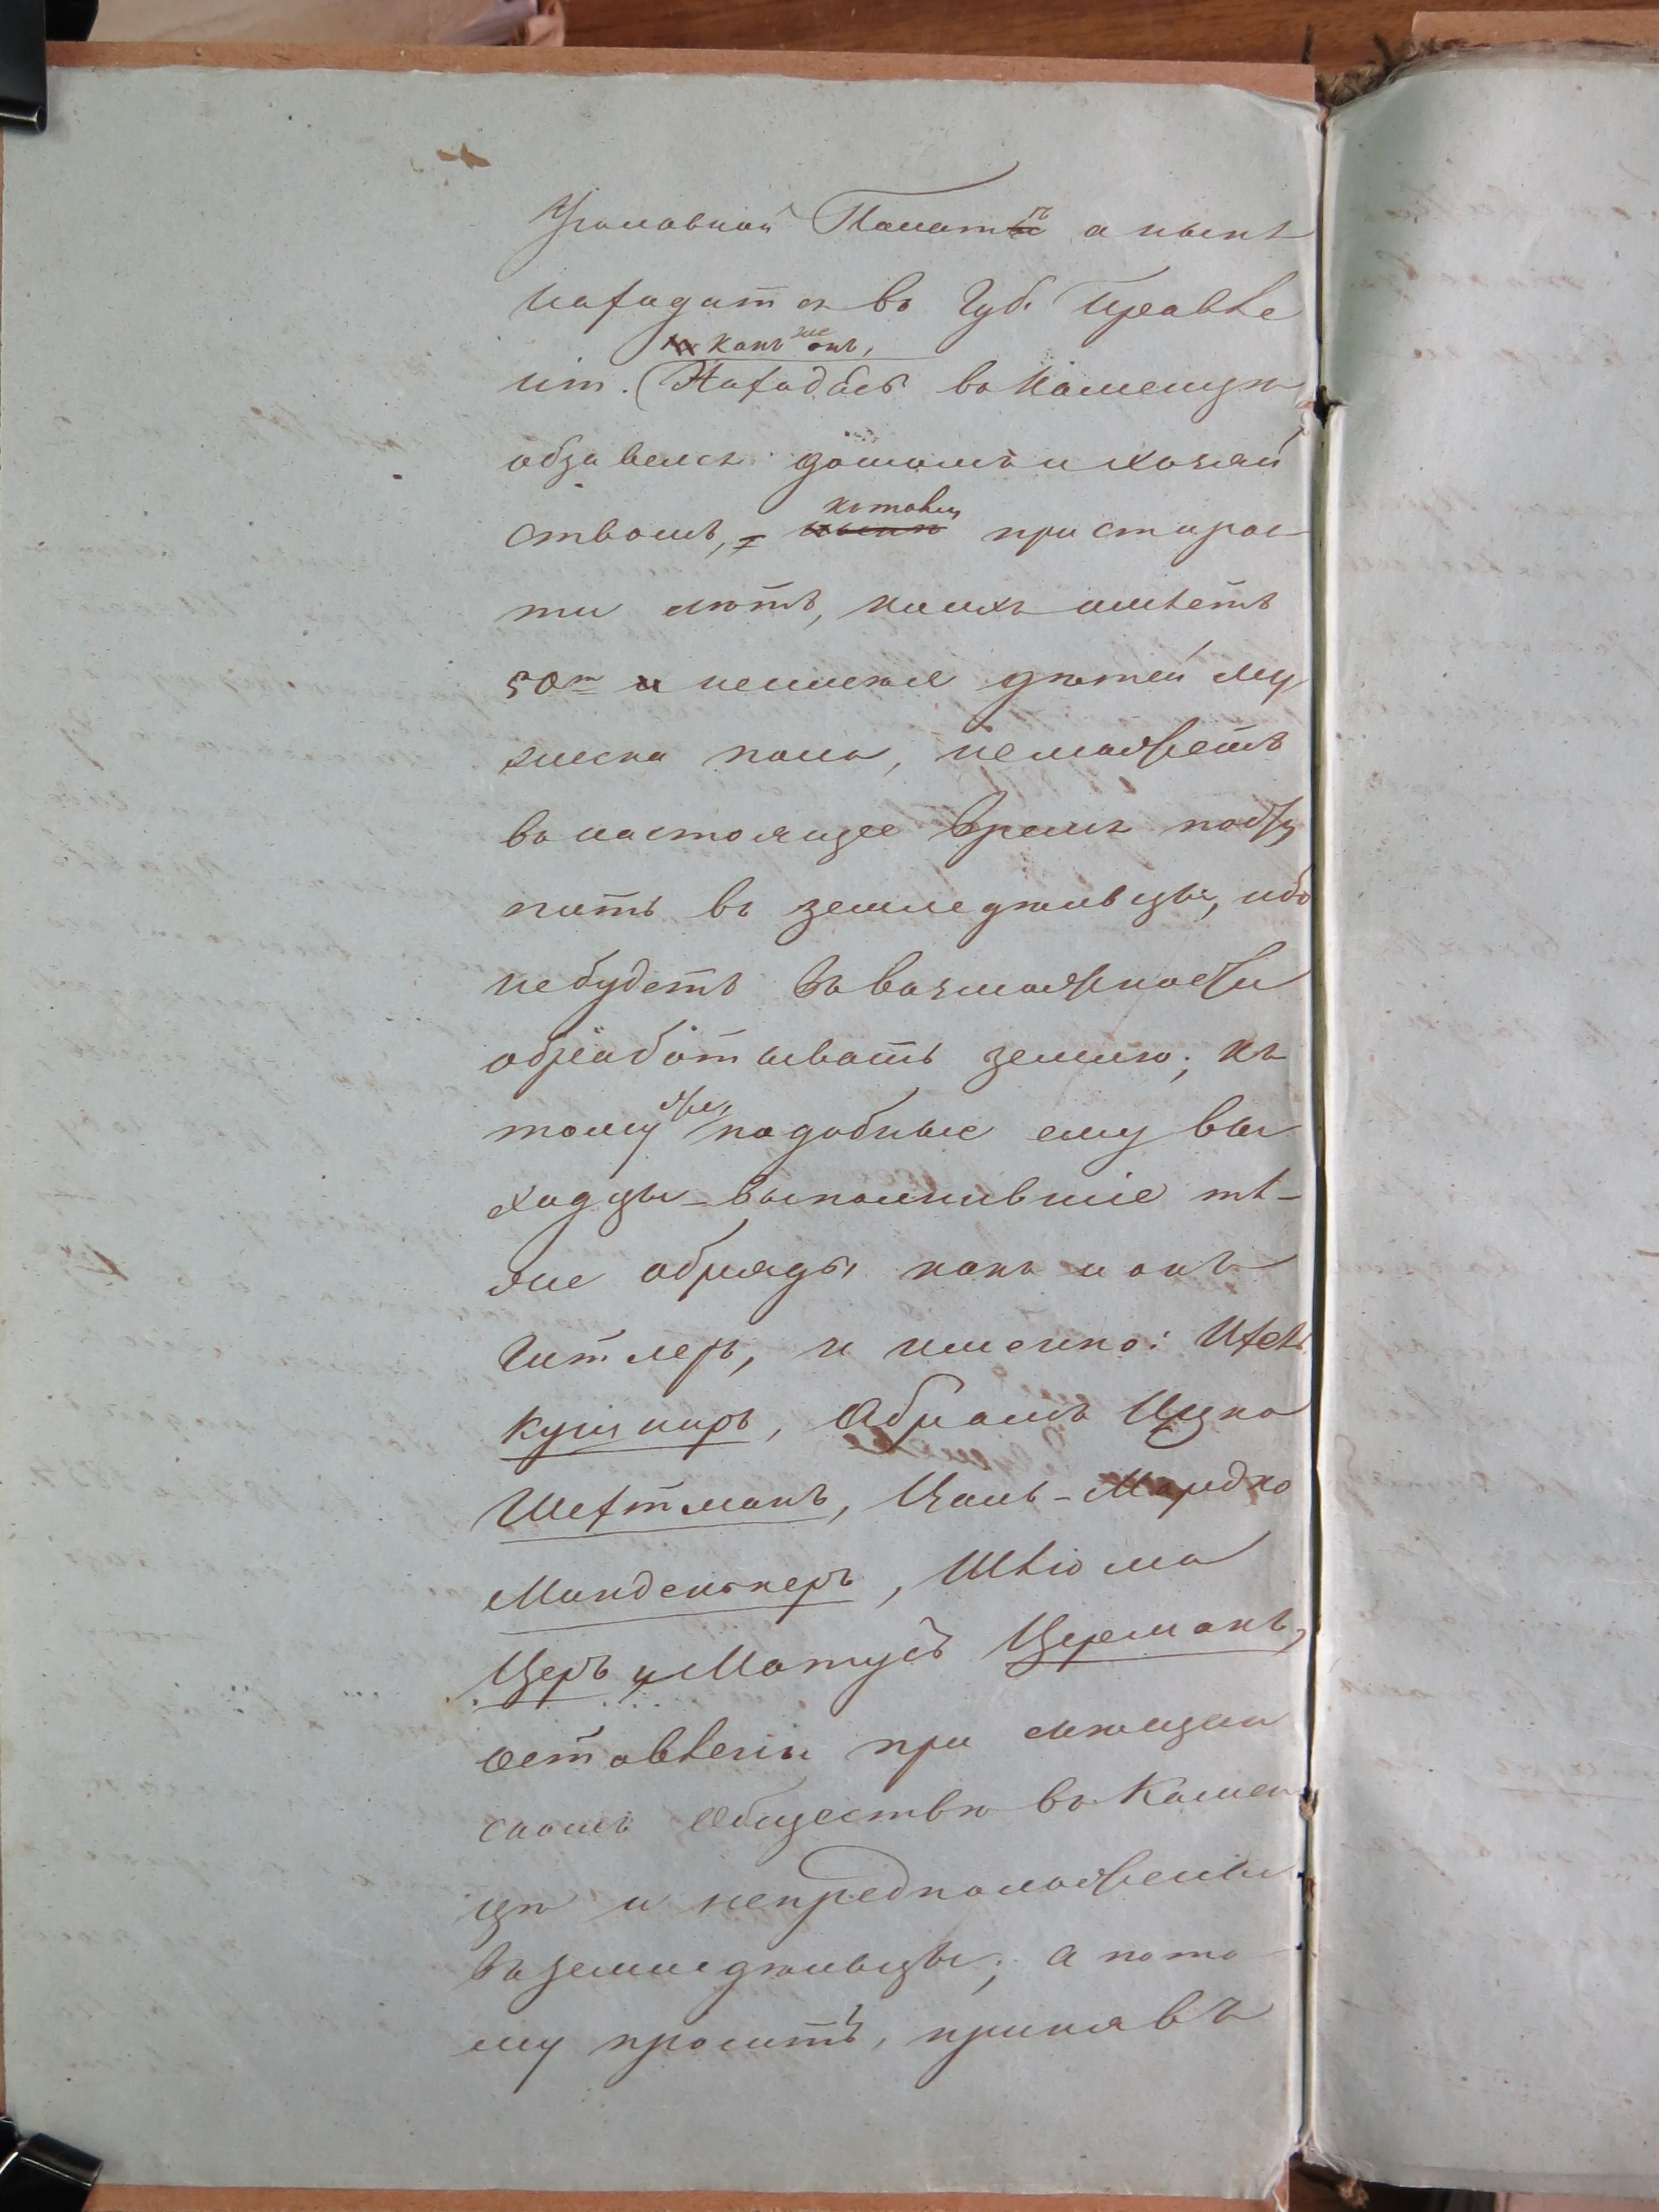 Уголовной Палатѣ а нынѣ
находится въ Губ. Правле
какъ же онъ,
нiи. (Находясь въ Каменцѣ
обзавелся домомъ и хозяй
ствомъ, и при старос
ти лѣтъ, коихъ имѣетъ
50ть и неимея дѣтей му
жеска пола, неможетъ
въ настоящее время посту
пить въ земледѣльцы, ибо
небудетъ въ возможности
обработывать землю; къ
тому же, подобные ему вы
ходцы выполнившiе тѣ-
же обряды какъ и онъ
Гитлеръ, и именно:
Кушниръ, Абрамъ Ицко
Шехтманъ, Цаль-Мордко
Манделькеръ, Шлiома
Церъ и Матусъ Церманъ,
оставлены при мѣщан
скомъ Обществѣ въ Камен
цѣ и непредположены
въ земледѣльцы; а пото
му проситъ, принявъ